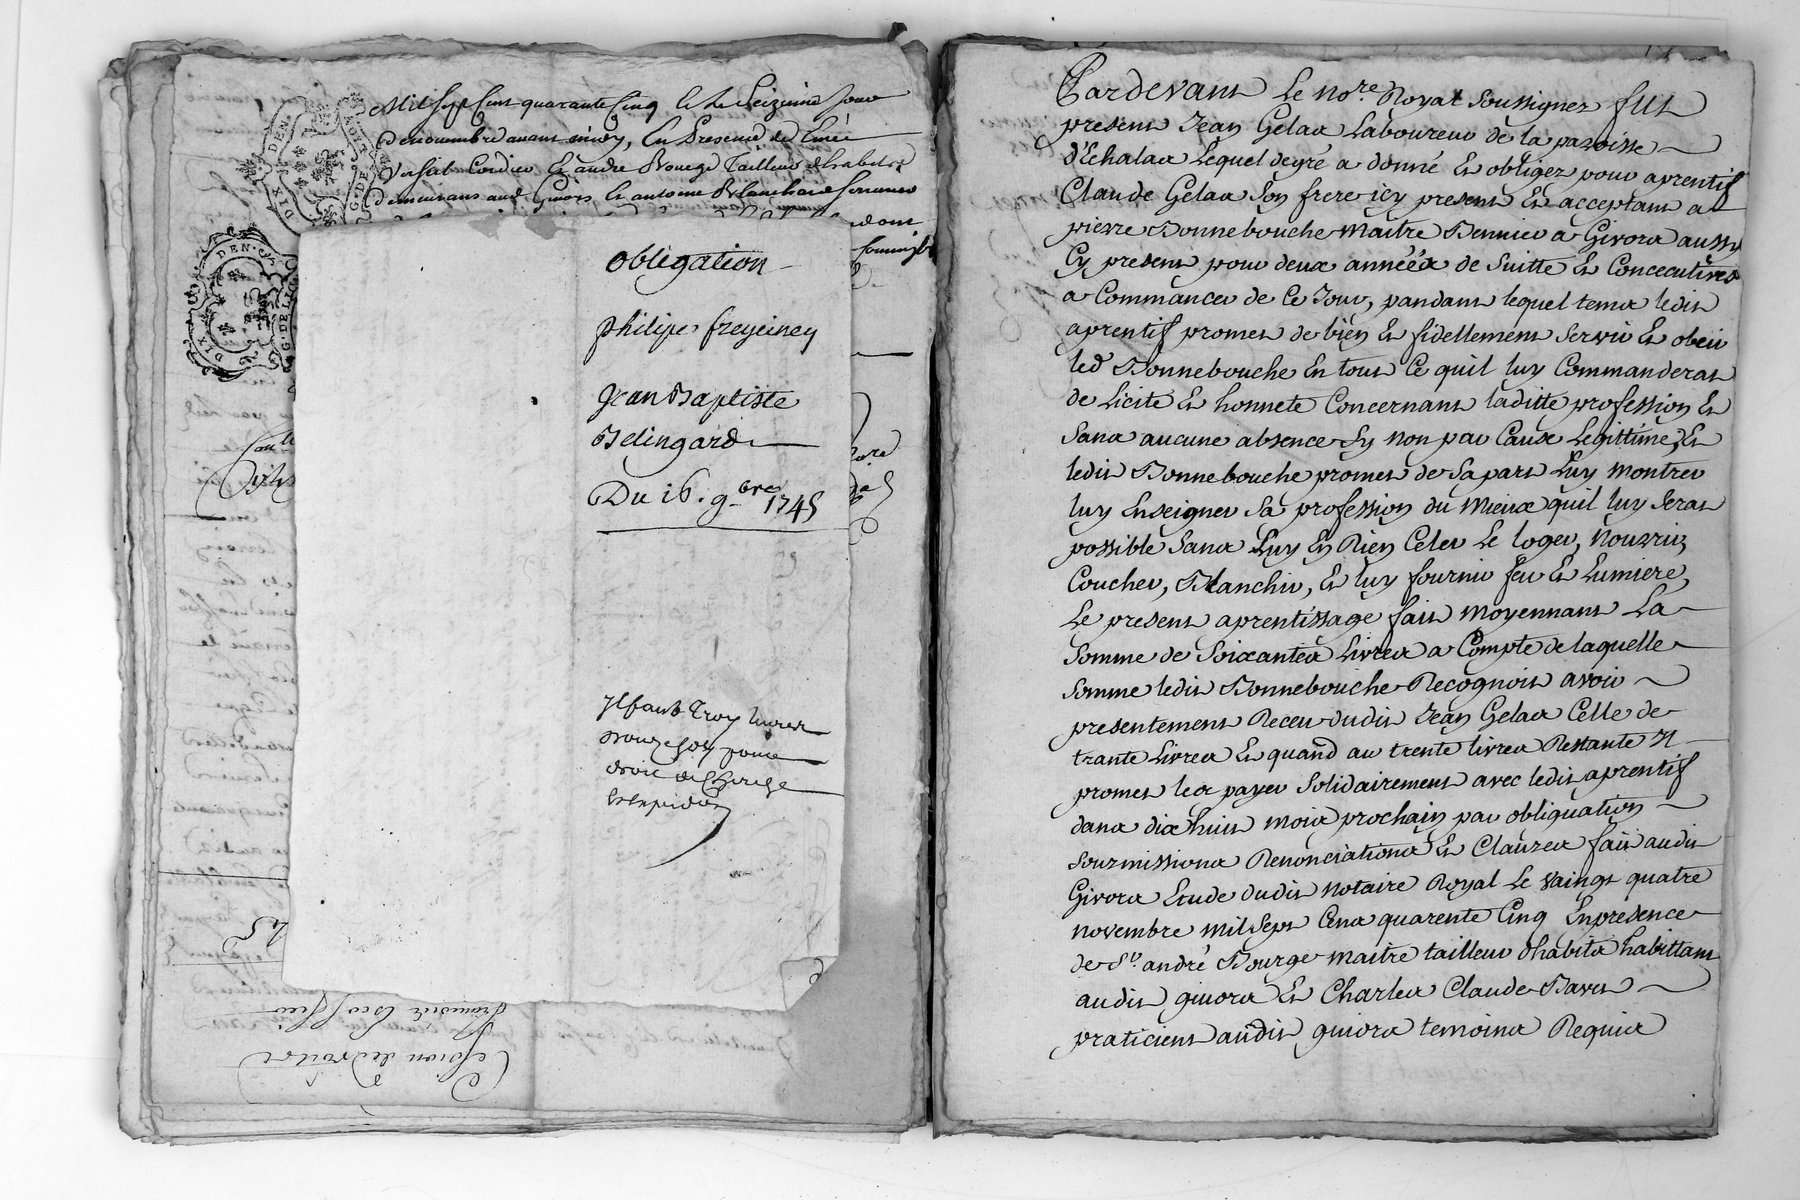 Mil sept cent quarante cinq le le seizieme jour
de novembre avant midy, En presence de
Cordier Et andré Bourge Tailleur d'habits
demeurans aud Givors Et antoine Blanchard
dont
DIX DEN
G. DE LION
DIX DEN
G. DE LION
obligation
philipe freyeiney
Jean Baptiste
Belingard
Du 16. 9bre 1745
Il faut troy livres
douze sols pour
droit de
Et Expedition
Cession de droits
Pardevant Le No.re Royal soussignez fut
present Jean Gelas Laboureur de la parroisse
d'Echalas Lequel degré a donné Et obligez pour aprentif
Claude Gelas son frere icy present Et acceptant a
pierre Bonnebouche maitre Bennier a Givors aussy
Cy present pour deux années de suitte Et Concecutives
a Commancer de Ce Jour, pandant lequel tems ledit
aprentif promet de bien Et fidellement servir Et obeir
led Bonnebouche En tout Ce quil luy Commanderat
de Licite Et honnete Concernant laditte profession Et
sans aucune absence sy non par Cause Legittime, Et
ledit Bonnebouche promet de sa part Luy montrer
luy Enseigner sa profession du mieux quil luy serat
possible sans Luy En Rien Celer Le loger, Nourrir,
Coucher, Blanchir, Et luy fournir feu Et Lumiere,
Le present aprentissage fait moyennant La
somme de soixantes Livres a Compte de laquelle
somme ledit Bonnebouche Recognoit avoir
presentement Receu dudit Jean Gelas Celle de
trante Livres Et quand au trente livres Restante Il
promet les payer solidairement avec ledit aprentif
dans dix huit mois prochain par obliquation
sourmissions Renonciations Et Clauzes fait audit
Givors Etude dudit notaire Royal Le vaingt quatre
novembre mil sept Cens quarente Cinq En presence
de Sr. andré Bourge maitre tailleur d'habits habittant
audit givors Et Charles Claude Baret
praticient audit givors temoins Requis